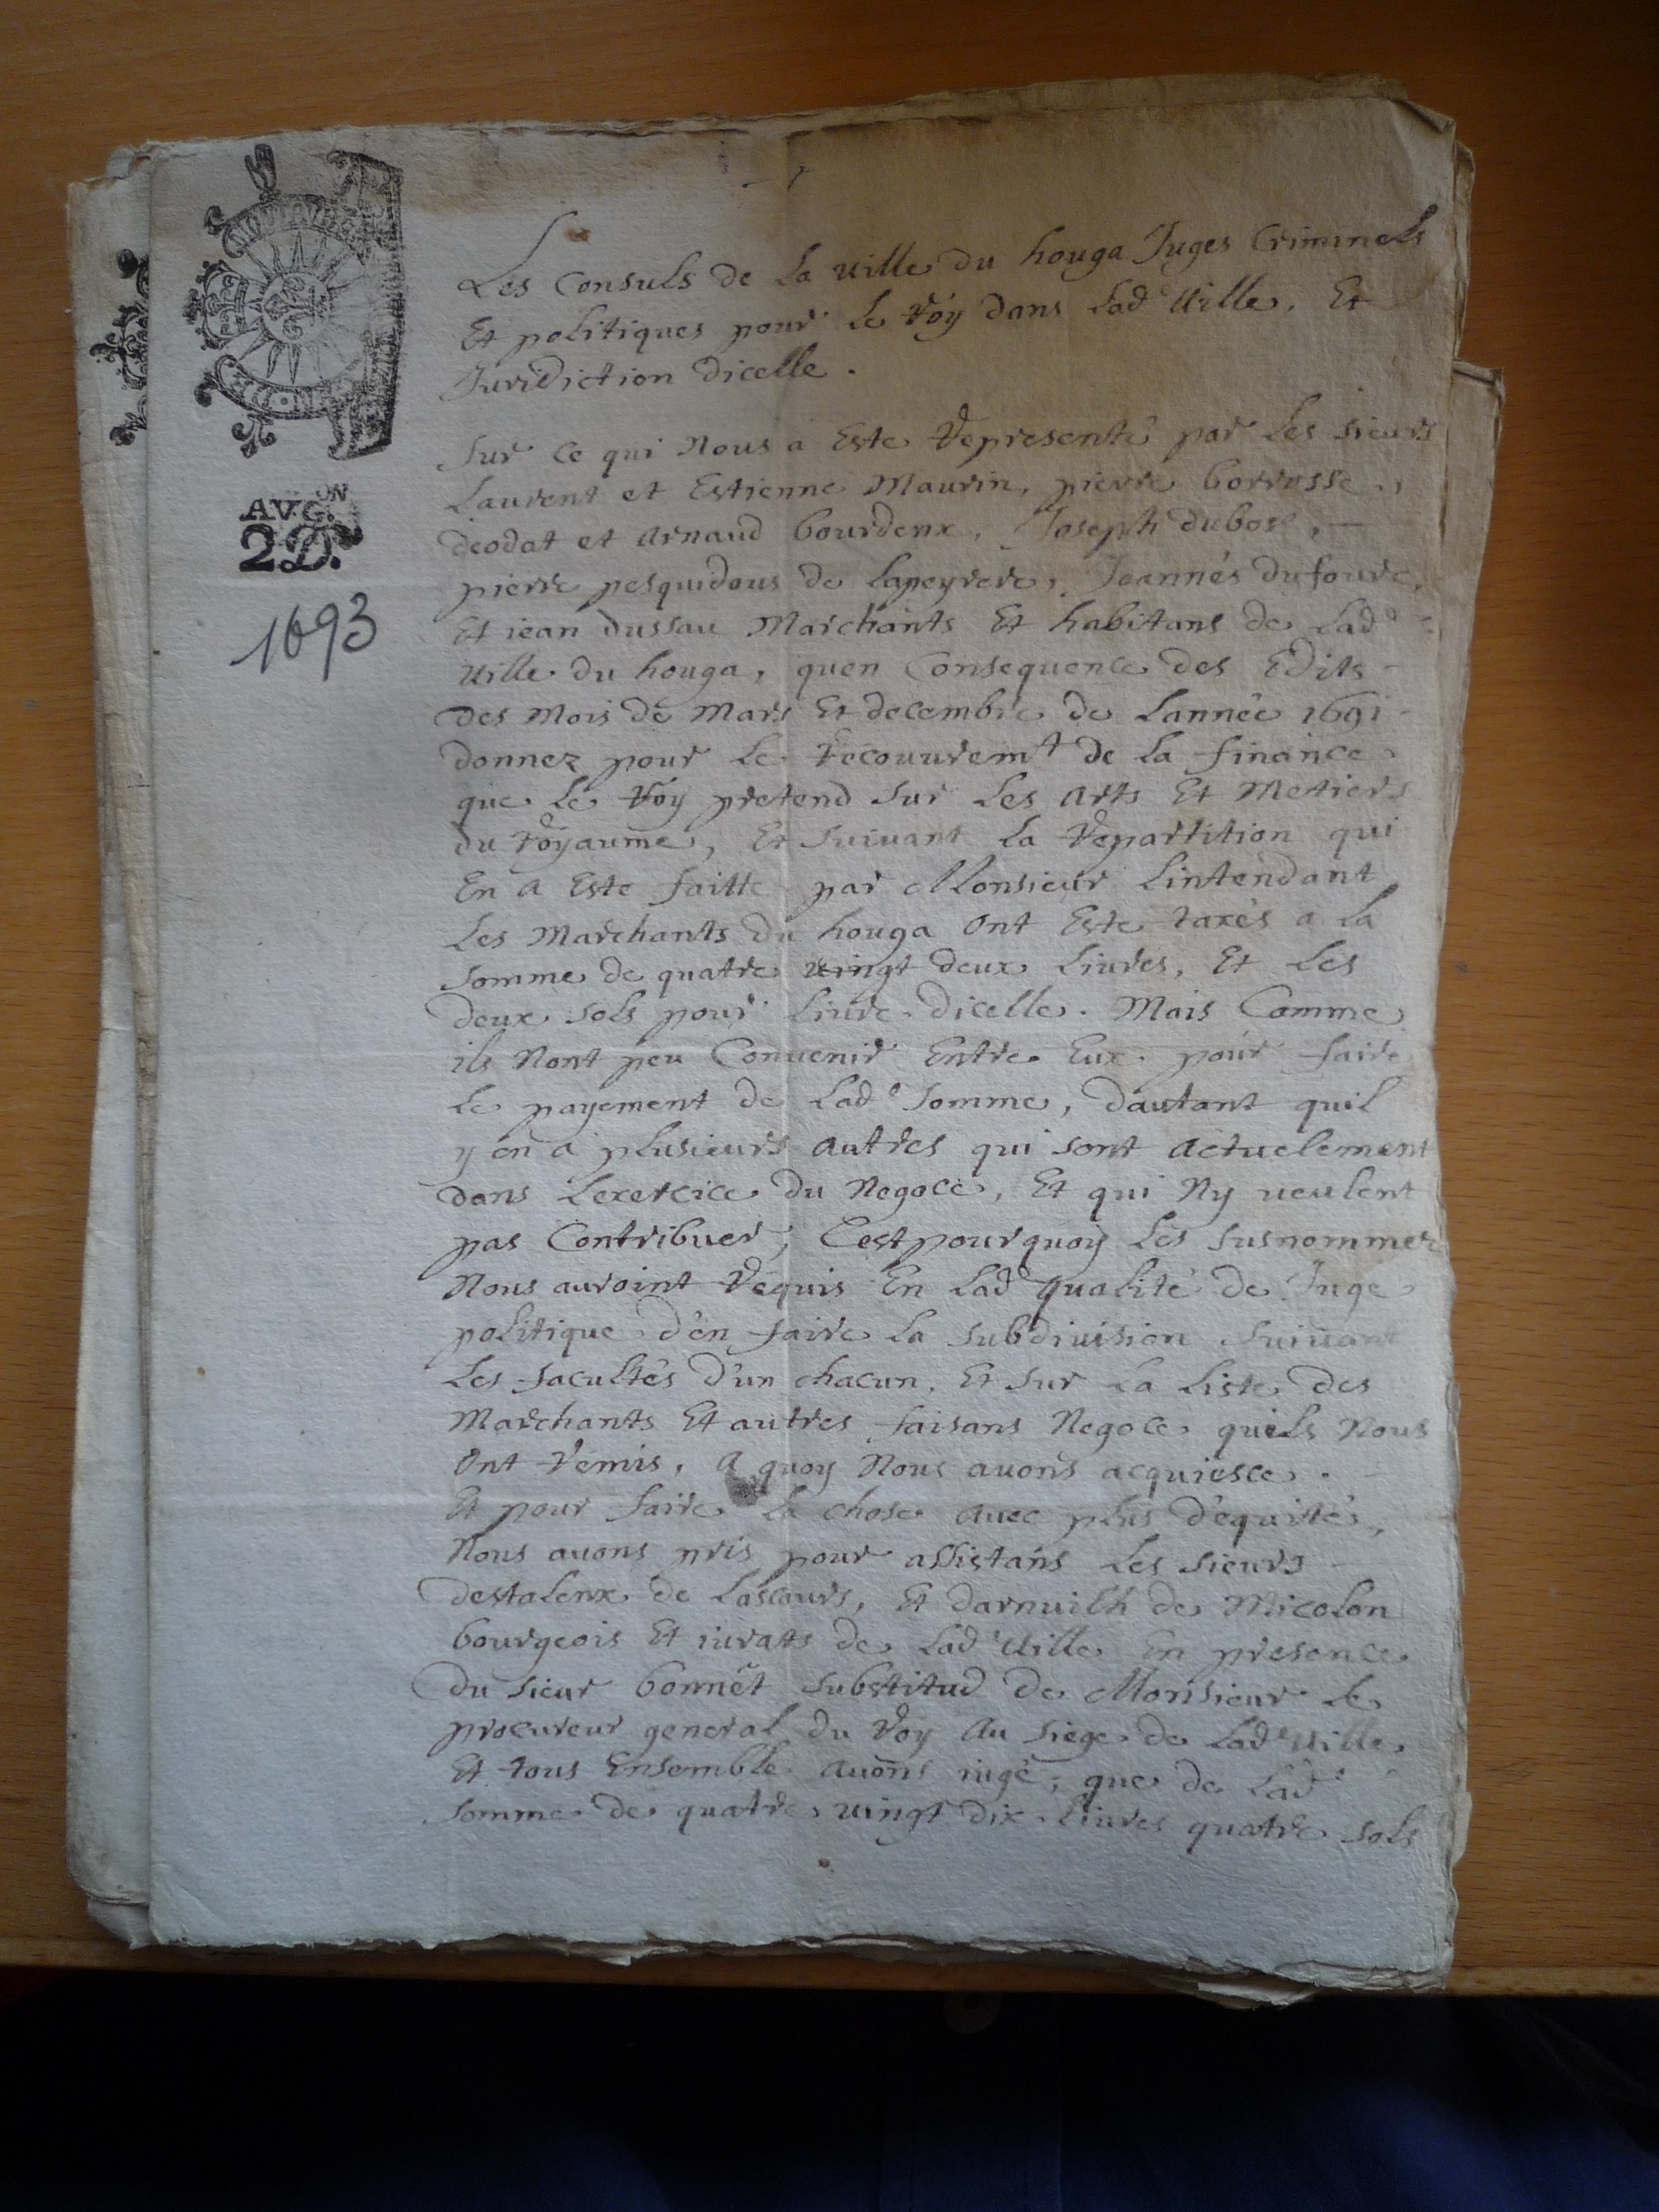 AVG.ON
2D.
1693
Les Consuls de La ville du houga Juges Criminels
Et politiques pour le Roy dans Lad.e Ville, Et
Juridiction dicelle.
Sur ce qui Nous a Este Representé par les sieurs
Laurent et Estienne Maurin, pierre borrusse,
deodat et Arnaud bourdenx, Joseph dubosc,
pierre pesquidous de Lapeyrere, Joannés dufourc,
Et jean dussau Marchants Et habitans de Lad.e
Ville du houga, quen Consequence des Edits
des Mois de Mars Et decembre de Lannée 1691
donnez pour le recouvremt de la finance
que le Roy pretend Sur Les Arts Et Metiers
du Royaume, Et Suivant la Repartition qui
En a Este faitte par Monsieur Lintendant
Les Marchants du houga Ont Este taxés a la
Somme de quatre vingt deux Livres, Et Les
deux sols pour Livre dicelle. Mais Comme
ils Nont peu Convenir Entre Eux pour faire
Le payement de Lad.e Somme, dautant quil
y en a plusieurs autres qui sont actuelement
dans Lexercice du Negoce, Et qui Ny veulent
pas Contribuer, Cestpourquoy Les susnommez
Nous auroint Requis En Lad.e qualité de Juge
politique d'en faire la Subdivision Suivant
Les facultés d'un chacun, Et Sur La Liste des
Marchants Et autres faisans Negoce quils Nous
Ont Remis, A quoy Nous avons acquiesce.
Et pour faire La chose avec plus d'equité,
Nous avons pris pour assistans Les Sieurs
destalenx de Lascours, Et darnuilh de Micolon
bourgeois Et jurats de Lad.e Ville En presence
du Sieur bonnet Substitud de Monsieur le
procureur general du Roy Au Siege de Lad.e Ville,
Et tous Ensemble avons jugé, que de Lad.e
Somme de quatre vingt dix Livres quatre sols